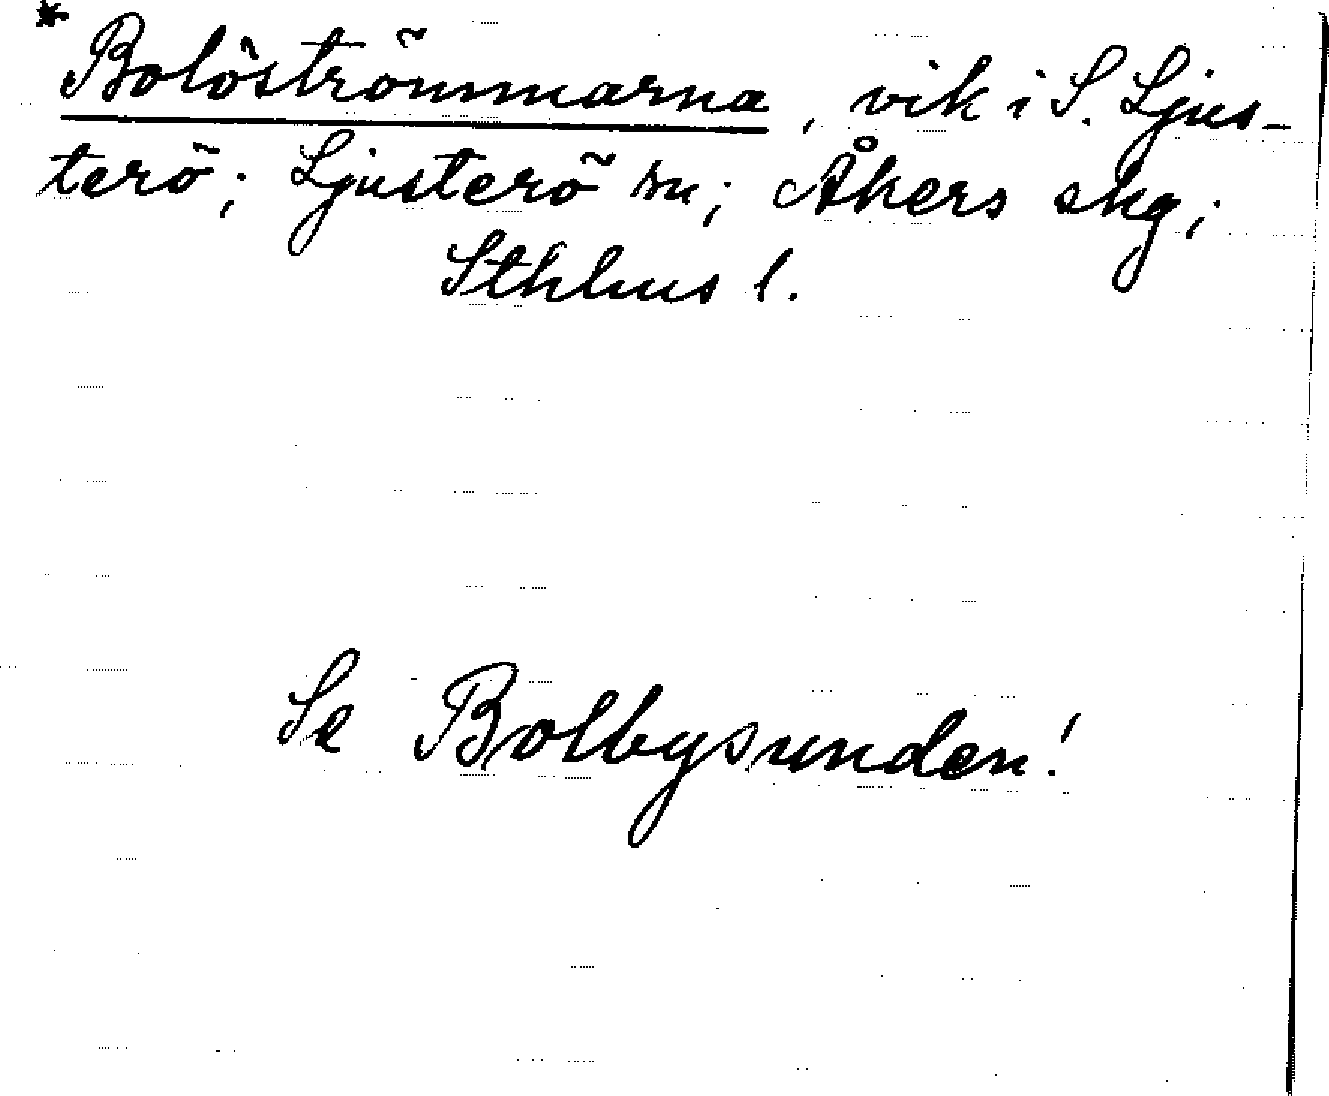 * Bolöströmmarna, vik i S. Ljus-
terö; Ljusterö sn; Åkers skg;
Sthlms l.
Se Bolbysunden!